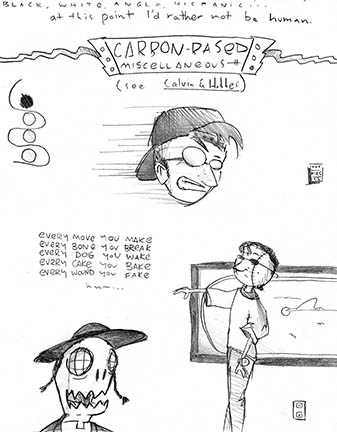 BLACK, WHITE, ANGLO, HISPANIC...
at this point I'd rather not be human.
CARBON-BASED
MISCELLANEOUS
(see Calvin & Hobbes)
every move you make
every bone you break
every dog you wake
every cake you bake
every wound you fake
hum...